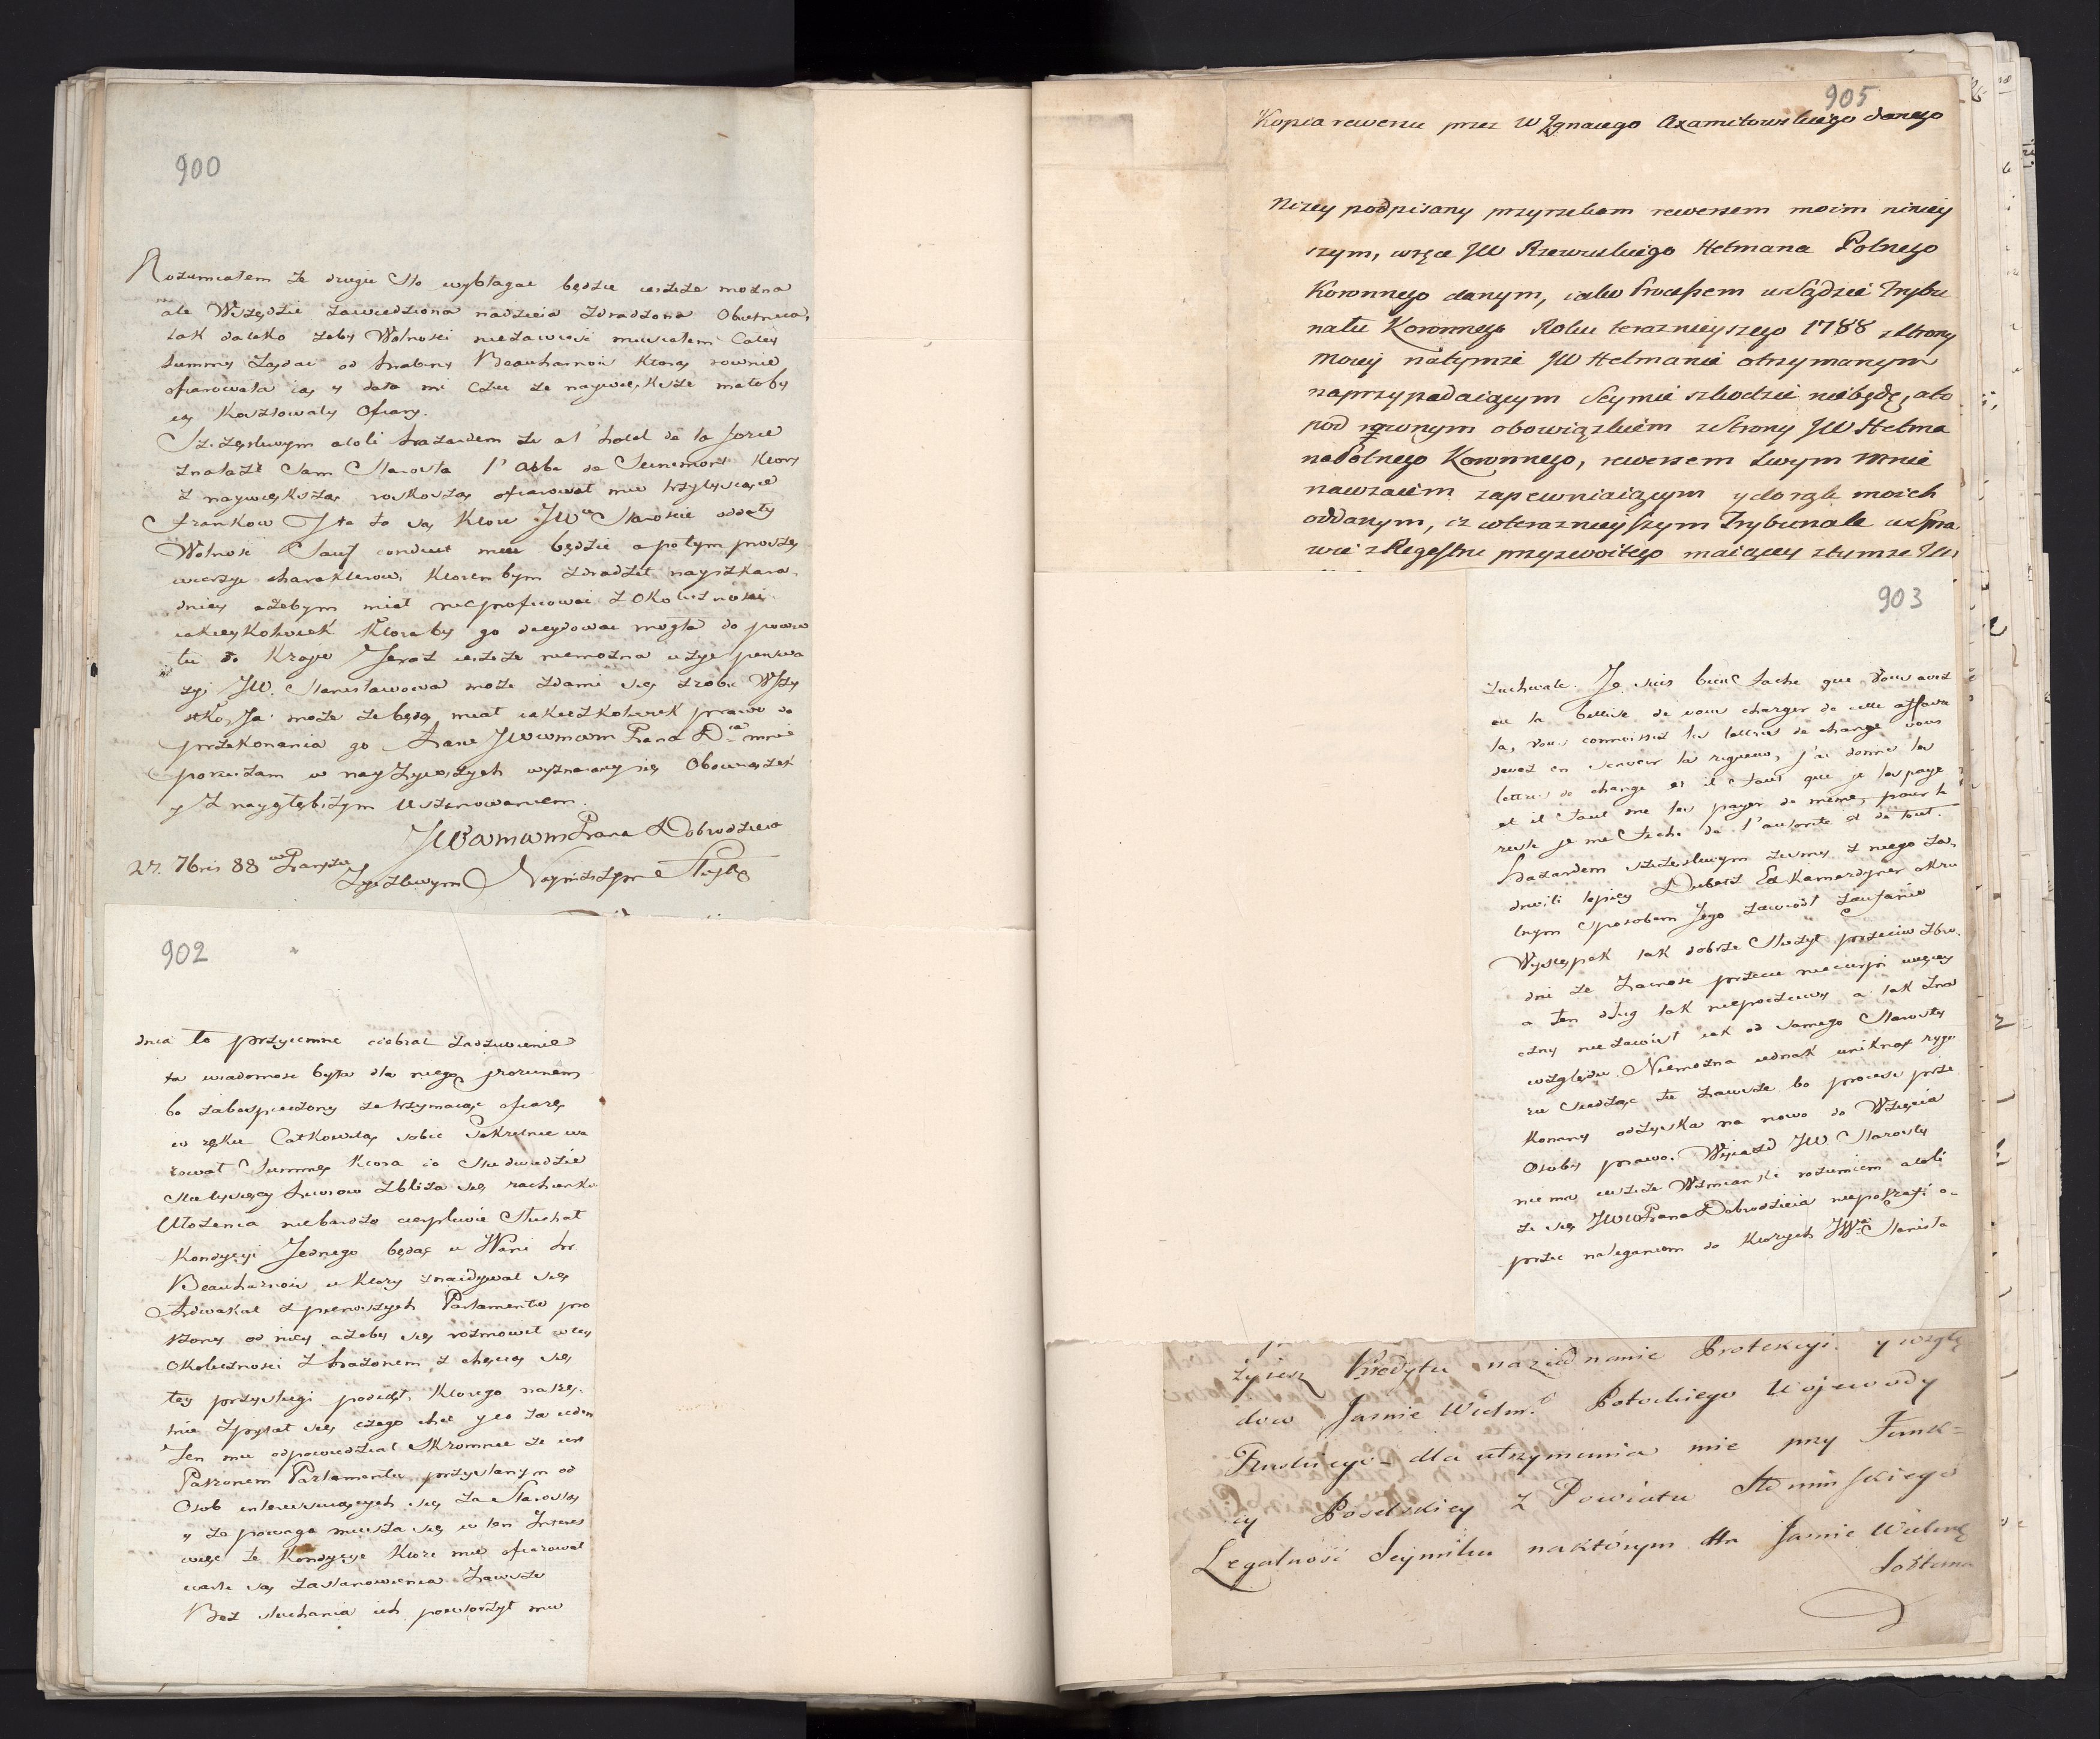 900
Rozumiałem że drugie sto wybłagać będzie ieszcze można
ale Wszędzie zawiedziona nadzieia zdradzona Obietnica,
tak daleko żeby Wolności niezawieść musiałem Całey
Summy żądać od hrabiny Beauharnois ktora rownie
ofiarowała ią y dała mi czuć że naywiększe małoby
ią Kosztowały Ofiary.
Szczęśliwym atoli hazardem że a l'hotel de la force
znalazł Sam Starosta l'Abbe de
z naywiększą roskoszą ofiarował mu trzy tysiące
frankow Ita to są Ktore JWu Staroscie oddały
Wolność Sauf conduit mieć będzie a potym proszę
wierzyć charakterowi Ktorembym zdradził nayszkara
dniey ażebym miał nieprofitować z Okoliczności
iakieykolwiek Ktoraby go decydować mogła do powro
tu do Kraju Teraz ieszcze niemożna użyć perswa
zyi JW. Stanisławowa może zdami się zrobić Wszy
stko, Ja może że będę miał iakieżkolwiek prawo do
przekonania go Łasce JWWmWm Pana Dia mnie
poruczam w nayżywszych wyznaiąc się Obowiązek
y z naygłębszym Uszanowaniem.
JWWmWm Pana Dobrodzieia
27. 7bris 88 w Paryżu
Życzliwym Nayniższym Sługą
902
dnia to przyiemne odebrać zadziwienie
ta wiadomość była dla niego piorunem
bo zabespieczony że trzymaiąc ofiarę
w ręku Całkowitą sobie Sekretnie wa
rował Summę ktora do Studwudzie
stu tysięcy Liwrow zbliża się rachunku
Ułożenia niebardzo cierpliwie Słuchał
Kondycyi Jednego będąc u Wani hr
Beauharnois u ktory znaidywał się
Adwokat z pierwszych Parlamentu pro
szony od niey ażeby się rozmowił w tey
Okoliczności z hrażonem z chęcią się
tey przysługi podiął, Ktorego natrę.
tnie zpytał się czego chce y co za ieden
Ten mu odpowiedział Skromnie że iest
Patronem Parlamentu przysłanym od
Osob interesuiących się za Starostą
y że powaga miesza się w ten Interes
więc te Kondycye Ktore mu ofiarował
warte są zastanowienia Zawsze
Bez słuchania ich powtorzył mu
905
Kopia rewersu przez W Ignacego Axamitowskiego danego
Niżey podpisany przyrzekam rewersem moim niniey
szym, wręce JW Rzewuskiego Hetmana Polnego
Koronnego danym, iako Processem w Sądzie Trybu
nału Koronnego Roku teraznieyszego 1788 z Strony
Mowey natymże JW Hetmanie otrzymanym
naprzypadaiącym Seymie szkodzić niebędę, ato
pod rownym obowiązkiem z Strony JW Hetma
na Polnego Koronnego, rewersem Swym mnie
nawzaiem zapewniaiącym y do rąk moich
oddanym, iż w teraznieyszym Trybunale w Spra
wie z Regestru przyzwoitego maiącey z tymże JW
903
zuchwale. Je suis bien fache que Vous avez
eu la bettise de vous charger de cette affaire
la, vous connoissez les lettres de change vous
devez en scavoir la rigueur, j'ai donné les
lettres de change et il faut que je les paye
et il faut me les payer de meme, pour le
reste je me fiche de l'autorité et de tout.
hazardem szczęśliwym żeśmy z niego za,
drwili lepiey Dubosz Ex Kamerdyner okru
tnym sposobem Jego zawiodł zaufanie
Występek tak dobrze Służył przeciw zbro.
dni że haność przecie niecierpi więcey
a ten dług tak niepoczciwy a tak zna
czny niezawisł iak od samego Starosty
względu. Niemożna iednak uniknąć rygo
ru siedząc tu zawsze bo process prze
konany odzyska na nowo do Wzięcia
Osoby prawo. Wyiazd JW Starosty
nie ma ieszcze Wzmianki rozumiem atoli
że się JWWPana Dobrodzieia niepotrafi o-
przeć naleganiom do Ktorych JWa Stanisła
żyiesz Kredytu, naziednanie Protekcyi y wzglę
dow Jaśnie Wielm.o Potockiego Wojewody
Ruskiego dla utrzymania mie przy Funk=
cyi Poselskiey z Powiatu Słonimskiego
Legalność Seymiku naktórym Hr Jaśnie Wielmę
Sołtana